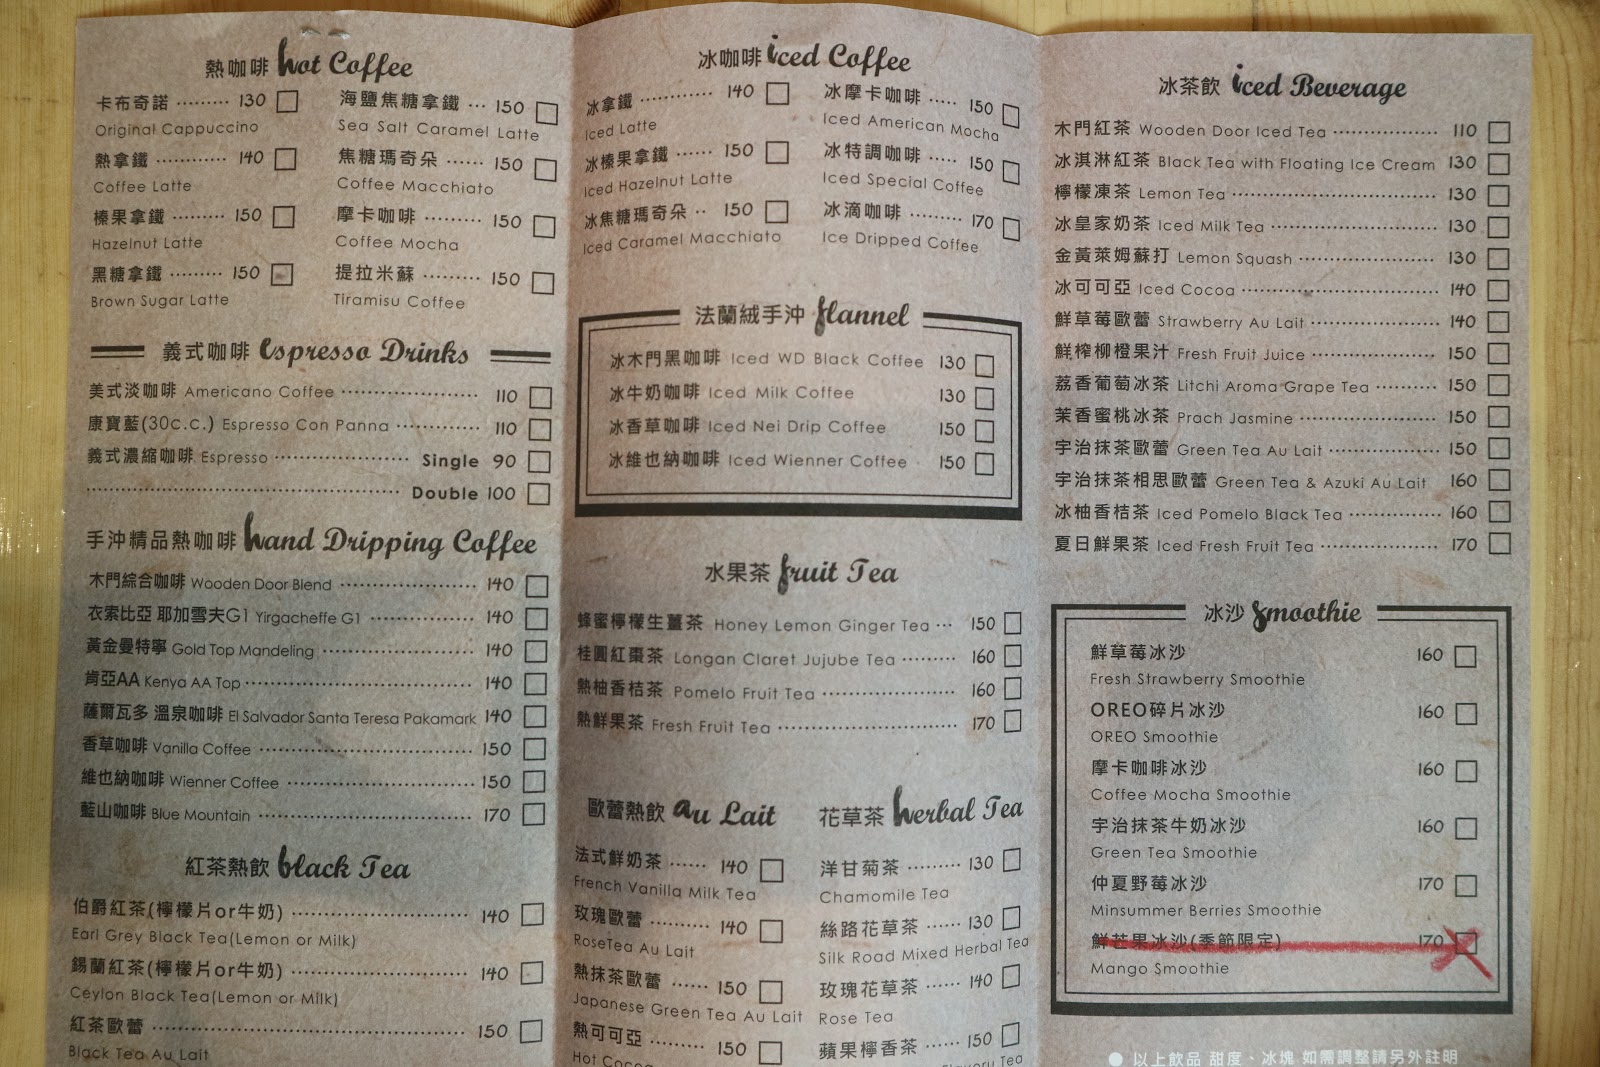 熱咖啡 hot Coffee
卡布奇諾 ········· 130
Original Cappuccino
熱拿鐵 ············ 140
Coffee Latte
榛果拿鐵 ········· 150
Hazelnut Latte
黑糖拿鐵 ········· 150
Brown Sugar Latte
海鹽焦糖拿鐵 ··· 150
Sea Salt Caramel Latte
焦糖瑪奇朵 ······ 150
Coffee Macchiato
摩卡咖啡 ········· 150
Coffee Mocha
提拉米蘇 ········· 150
Tiramisu Coffee
義式咖啡 Espresso Drinks
美式淡咖啡 Americano Coffee ········· 110
康寶藍(30c.c.) Espresso Con Panna ········· 110
義式濃縮咖啡 Espresso ········· Single 90
········· Double 100
手沖精品熱咖啡 hand Dripping Coffee
木門綜合咖啡 Wooden Door Blend ········· 140
衣索比亞 耶加雪夫G1 Yirgacheffe G1 ········· 140
黃金曼特寧 Gold Top Mandeling ········· 140
肯亞AA Kenya AA Top ········· 140
薩爾瓦多 溫泉咖啡 El Salvador Santa Teresa Pakamark 140
香草咖啡 Vanilla Coffee ········· 150
維也納咖啡 Wienner Coffee ········· 150
藍山咖啡 Blue Mountain ········· 170
紅茶熱飲 black Tea
伯爵紅茶(檸檬片or牛奶) ········· 140
Earl Grey Black Tea(Lemon or Milk)
錫蘭紅茶(檸檬片or牛奶) ········· 140
Ceylon Black Tea(Lemon or Milk)
紅茶歐蕾 ········· 150
Black Tea Au Lait
冰咖啡 iced Coffee
冰拿鐵 ············ 140
Iced Latte
冰榛果拿鐵 ······ 150
Iced Hazelnut Latte
冰焦糖瑪奇朵 ·· 150
Iced Caramel Macchiato
冰摩卡咖啡 ····· 150
Iced American Mocha
冰特調咖啡 ····· 150
Iced Special Coffee
冰滴咖啡 ········· 170
Ice Dripped Coffee
法蘭絨手沖 flannel
冰木門黑咖啡 Iced WD Black Coffee 130
冰牛奶咖啡 Iced Milk Coffee 130
冰香草咖啡 Iced Nei Drip Coffee 150
冰維也納咖啡 Iced Wienner Coffee 150
水果茶 fruit Tea
蜂蜜檸檬生薑茶 Honey Lemon Ginger Tea ··· 150
桂圓紅棗茶 Longan Claret Jujube Tea ········· 160
熱柚香桔茶 Pomelo Fruit Tea ········· 160
熱鮮果茶 Fresh Fruit Tea ········· 170
歐蕾熱飲 au Lait
法式鮮奶茶 ······ 140
French Vanilla Milk Tea
玫瑰歐蕾 ········· 140
RoseTea Au Lait
熱抹茶歐蕾 ······ 150
Japanese Green Tea Au Lait
熱可可亞 ········· 150
Hot Cocoa
花草茶 herbal Tea
洋甘菊茶 ········· 130
Chamomile Tea
絲路花草茶 ······ 130
Silk Road Mixed Herbal Tea
玫瑰花草茶 ······ 140
Rose Tea
蘋果檸香茶 ······ 150
Tea
冰茶飲 iced Beverage
木門紅茶 Wooden Door Iced Tea ········· 110
冰淇淋紅茶 Black Tea with Floating Ice Cream 130
檸檬凍茶 Lemon Tea ········· 130
冰皇家奶茶 Iced Milk Tea ········· 130
金黃萊姆蘇打 Lemon Squash ········· 130
冰可可亞 Iced Cocoa ········· 140
鮮草莓歐蕾 Strawberry Au Lait ········· 140
鮮榨柳橙果汁 Fresh Fruit Juice ········· 150
荔香葡萄冰茶 Litchi Aroma Grape Tea ········· 150
茉香蜜桃冰茶 Prach Jasmine ········· 150
宇治抹茶歐蕾 Green Tea Au Lait ········· 150
宇治抹茶相思歐蕾 Green Tea & Azuki Au Lait 160
冰柚香桔茶 Iced Pomelo Black Tea ········· 160
夏日鮮果茶 Iced Fresh Fruit Tea ········· 170
冰沙 Smoothie
鮮草莓冰沙 160
Fresh Strawberry Smoothie
OREO碎片冰沙 160
OREO Smoothie
摩卡咖啡冰沙 160
Coffee Mocha Smoothie
宇治抹茶牛奶冰沙 160
Green Tea Smoothie
仲夏野莓冰沙 170
Minsummer Berries Smoothie
鮮芒果冰沙(季節限定) 170
Mango Smoothie
● 以上飲品 甜度、冰塊 如需調整請另外註明